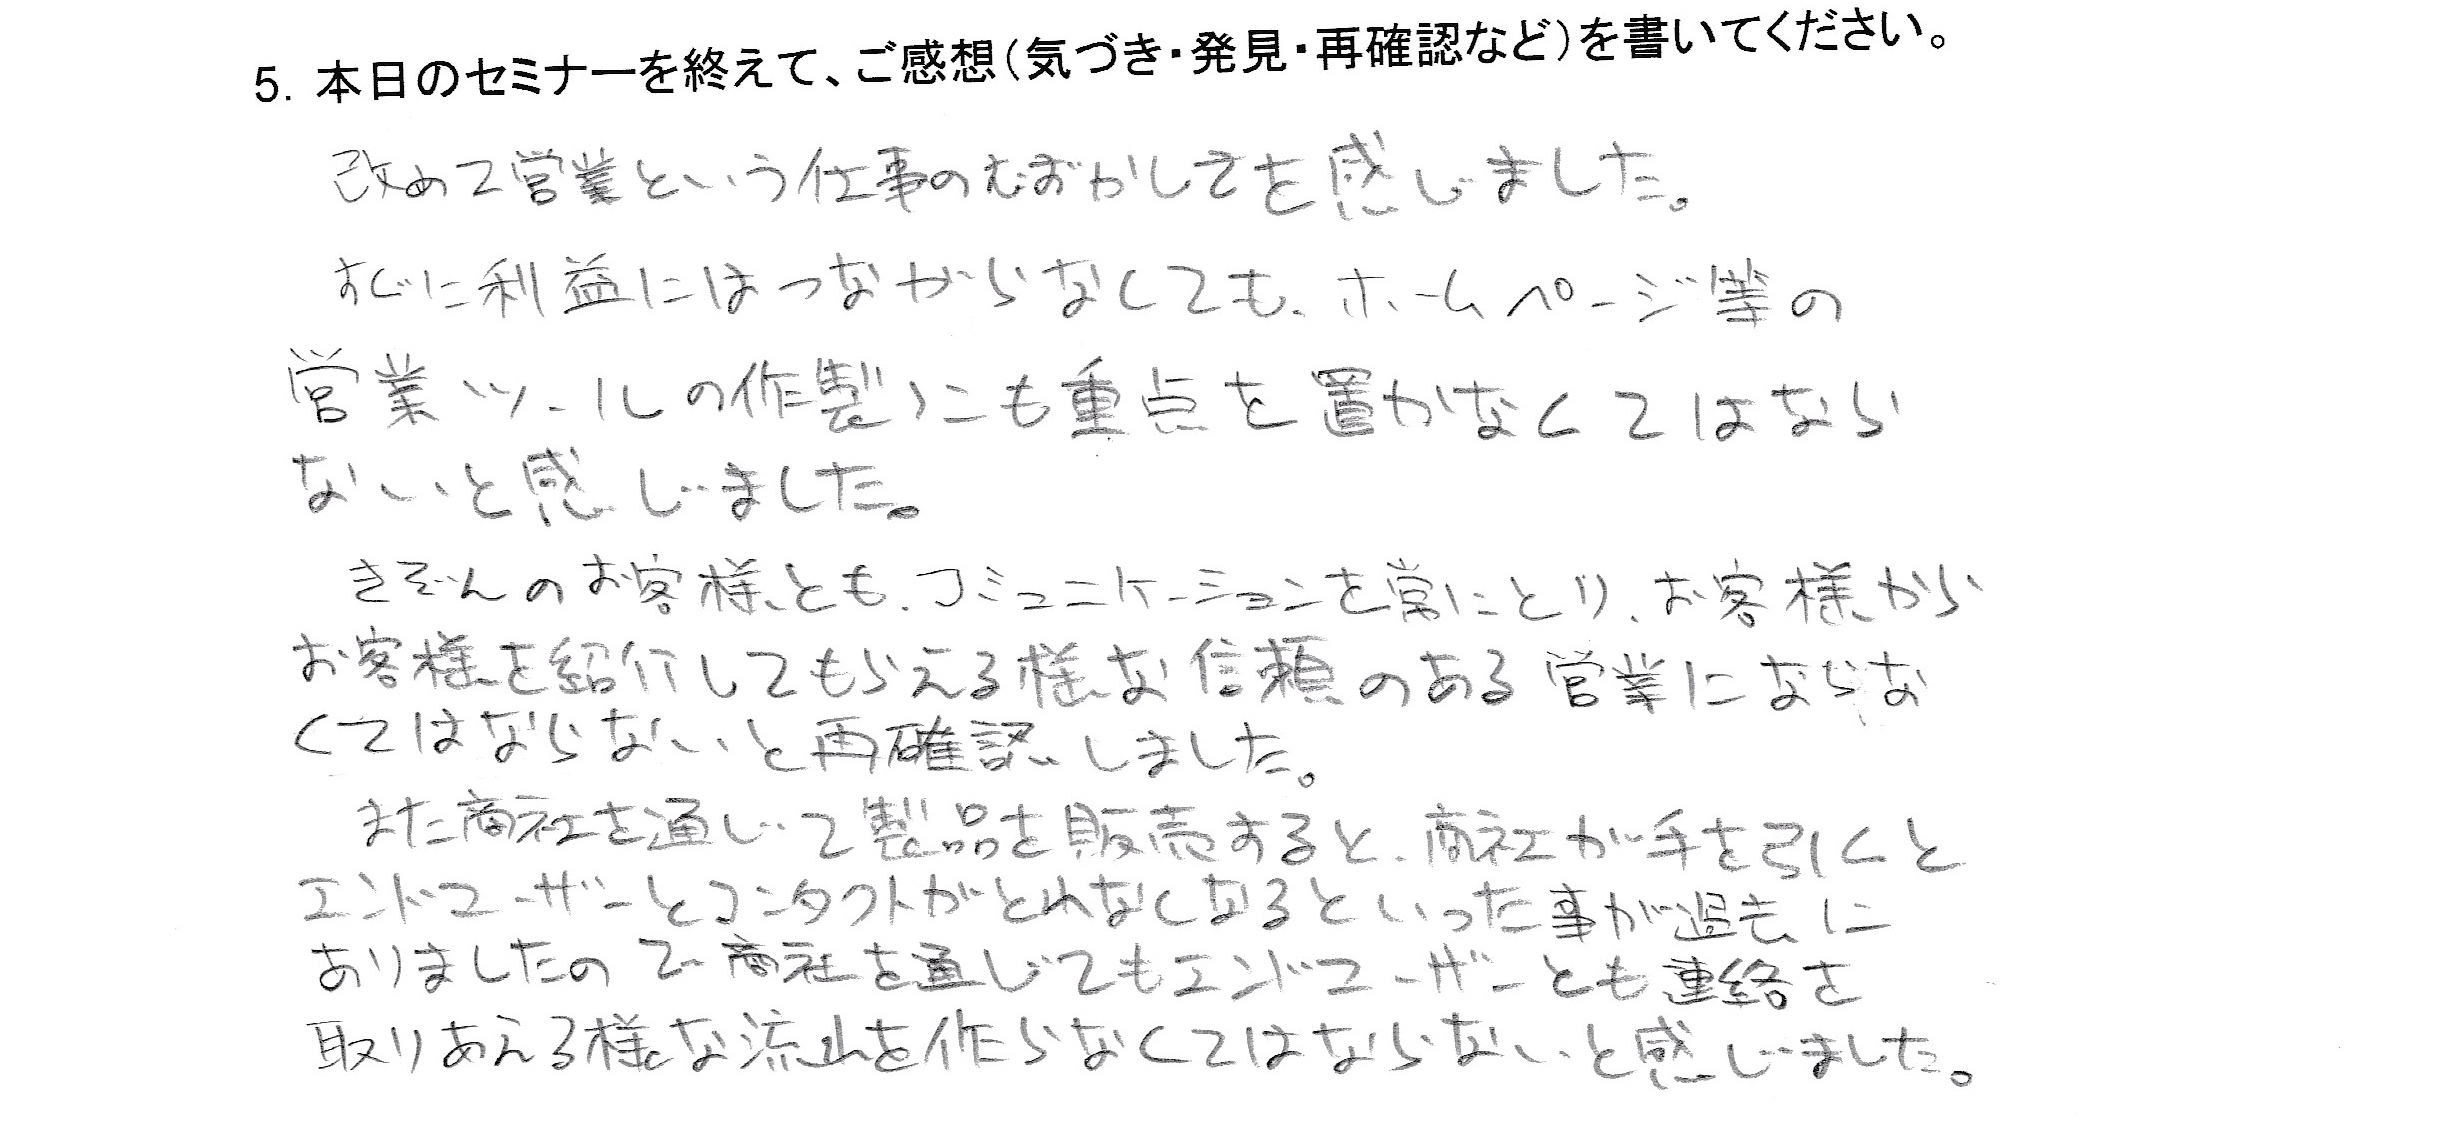 5. 本日のセミナーを終えて、ご感想(気づき・発見・再確認など)を書いてください。
改めて営業という仕事のむずかしさを感じました。
すぐに利益にはつながらなくても、ホームページ等の
営業ツールの作製にも重点を置かなくてはなら
ないと感じました。
きぞんのお客様とも、コミュニケーションを常にとり、お客様から
お客様を紹介してもらえる様な信頼のある営業にならな
くてはならないと再確認しました。
また商社を通じて製品を販売すると、商社が手を引くと
エンドユーザーとコンタクトがとれなくなるといった事が過去に
ありましたので商社を通じてもエンドユーザーとも連絡を
取りあえる様な流れを作らなくてはならないと感じました。